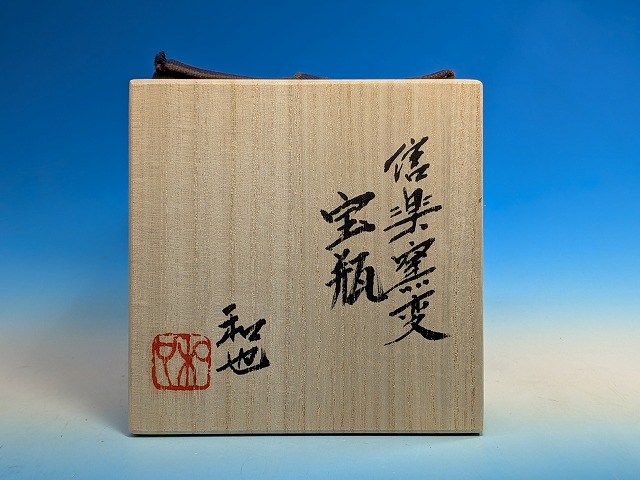 信楽窯変
宝瓶
和也